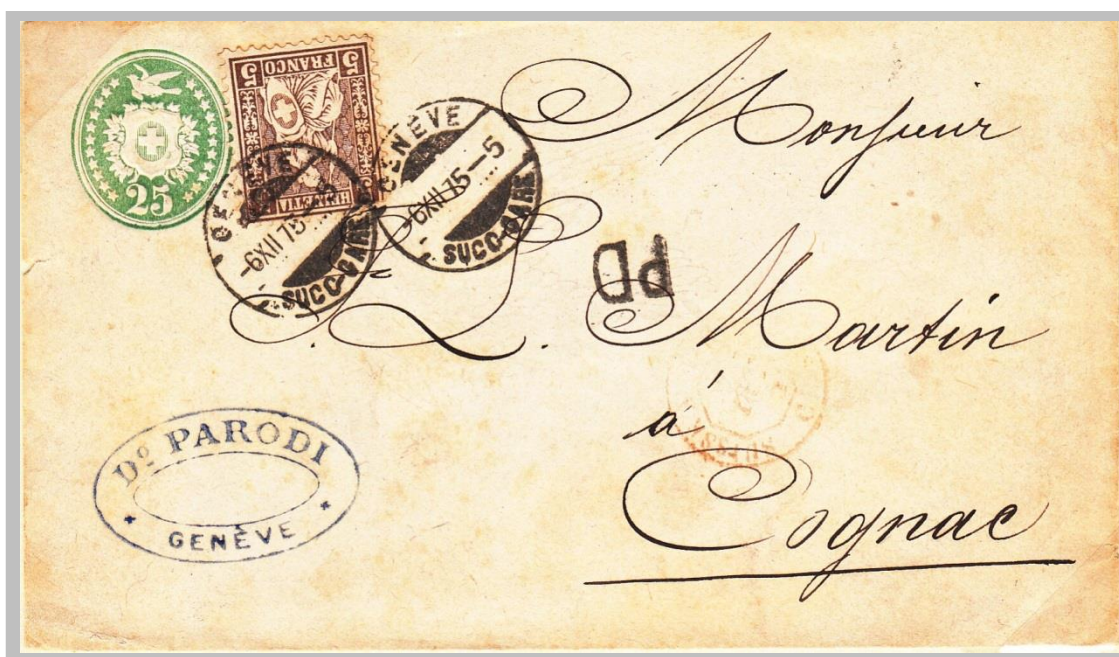 25
5 FRANCO 5
HELVETIA
GENÈVE
-6XII 75-5
SUCC-GARE
GENÈVE
-6XII 75-5
SUCC-GARE
Monsieur
PD
L. Martin
à
Cognac
Do PARODI
GENÈVE